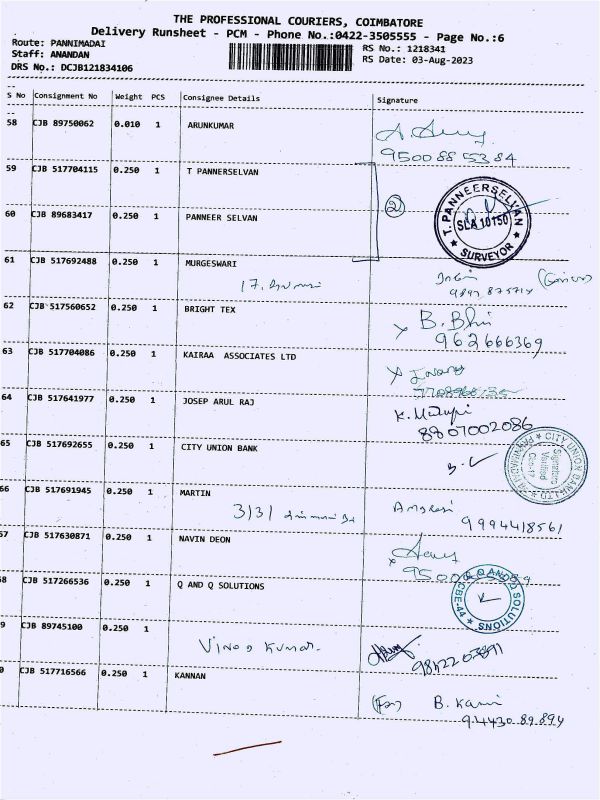 THE PROFESSIONAL COURIERS, COIMBATORE
Delivery Runsheet - PCM - Phone No.:0422-3505555 - Page No.:6
Route: PANNIMADAI
RS No.: 1218341
Staff: ANANDAN
RS Date: 03-Aug-2023
DRS No.: DCJB121834106
S No Consignment No Weight PCS Consignee Details Signature
58 CJB 89750062 0.010 1 ARUNKUMAR
9500885384
59 CJB 517704115 0.250 1 T PANNERSELVAN
2
T. PANNEERSELVAN
SLA 10150
SURVEYOR
60 CJB 89683417 0.250 1 PANNEER SELVAN
61 CJB 517692488 0.250 1 MURGESWARI
17.
62 CJB 517560652 0.250 1 BRIGHT TEX
x B.
962666369
63 CJB 517704086 0.250 1 KAIRAA ASSOCIATES LTD
64 CJB 517641977 0.250 1 JOSEP ARUL RAJ
K.
8807002086
65 CJB 517692655 0.250 1 CITY UNION BANK
CITY UNION BANK LTD
Signature
Verified
66 CJB 517691945 0.250 1 MARTIN
3/31
9994418561
67 CJB 517630871 0.250 1 NAVIN DEON
68 CJB 517266536 0.250 1 Q AND Q SOLUTIONS
Q AND Q SOLUTIONS
CBE-44
9 CJB 89745100 0.250 1
Vinod Kumar.
0 CJB 517716566 0.250 1 KANNAN
(For) B.
94430 89894